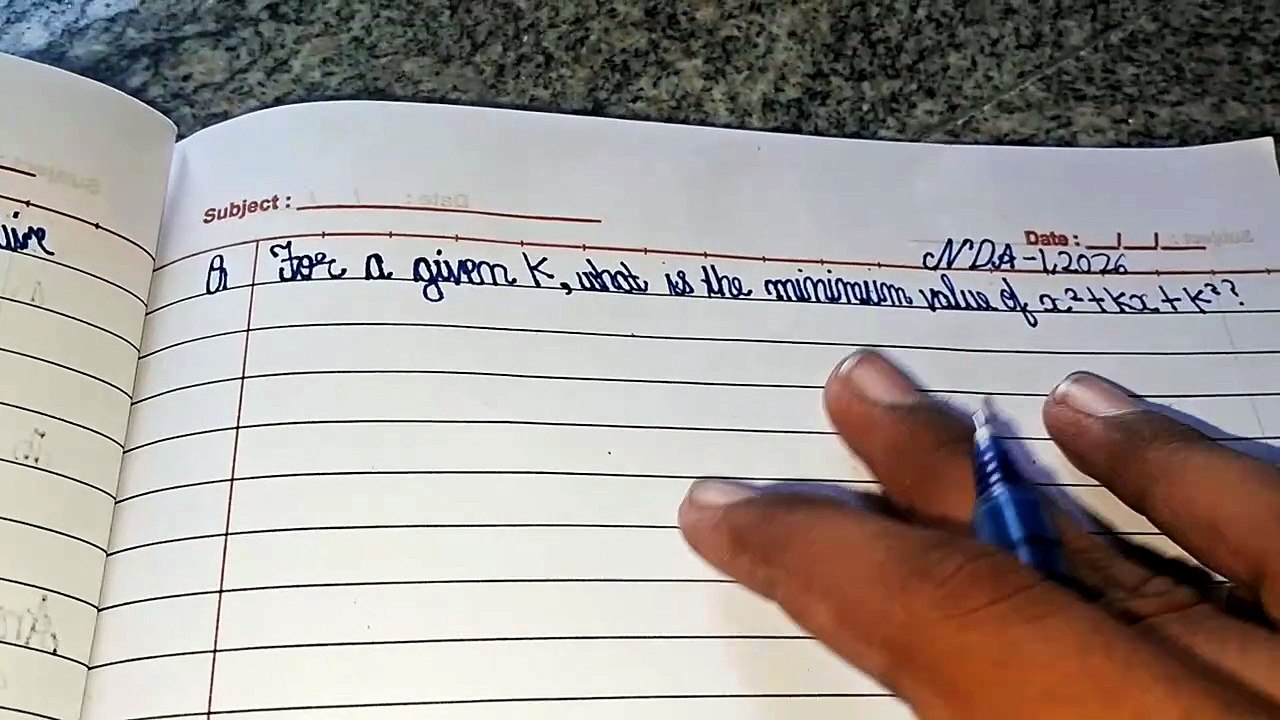 Subject :
Date : __/__/__
NDA-1,2026
Q For a given K, what is the minimum value of x²+kx+k²?